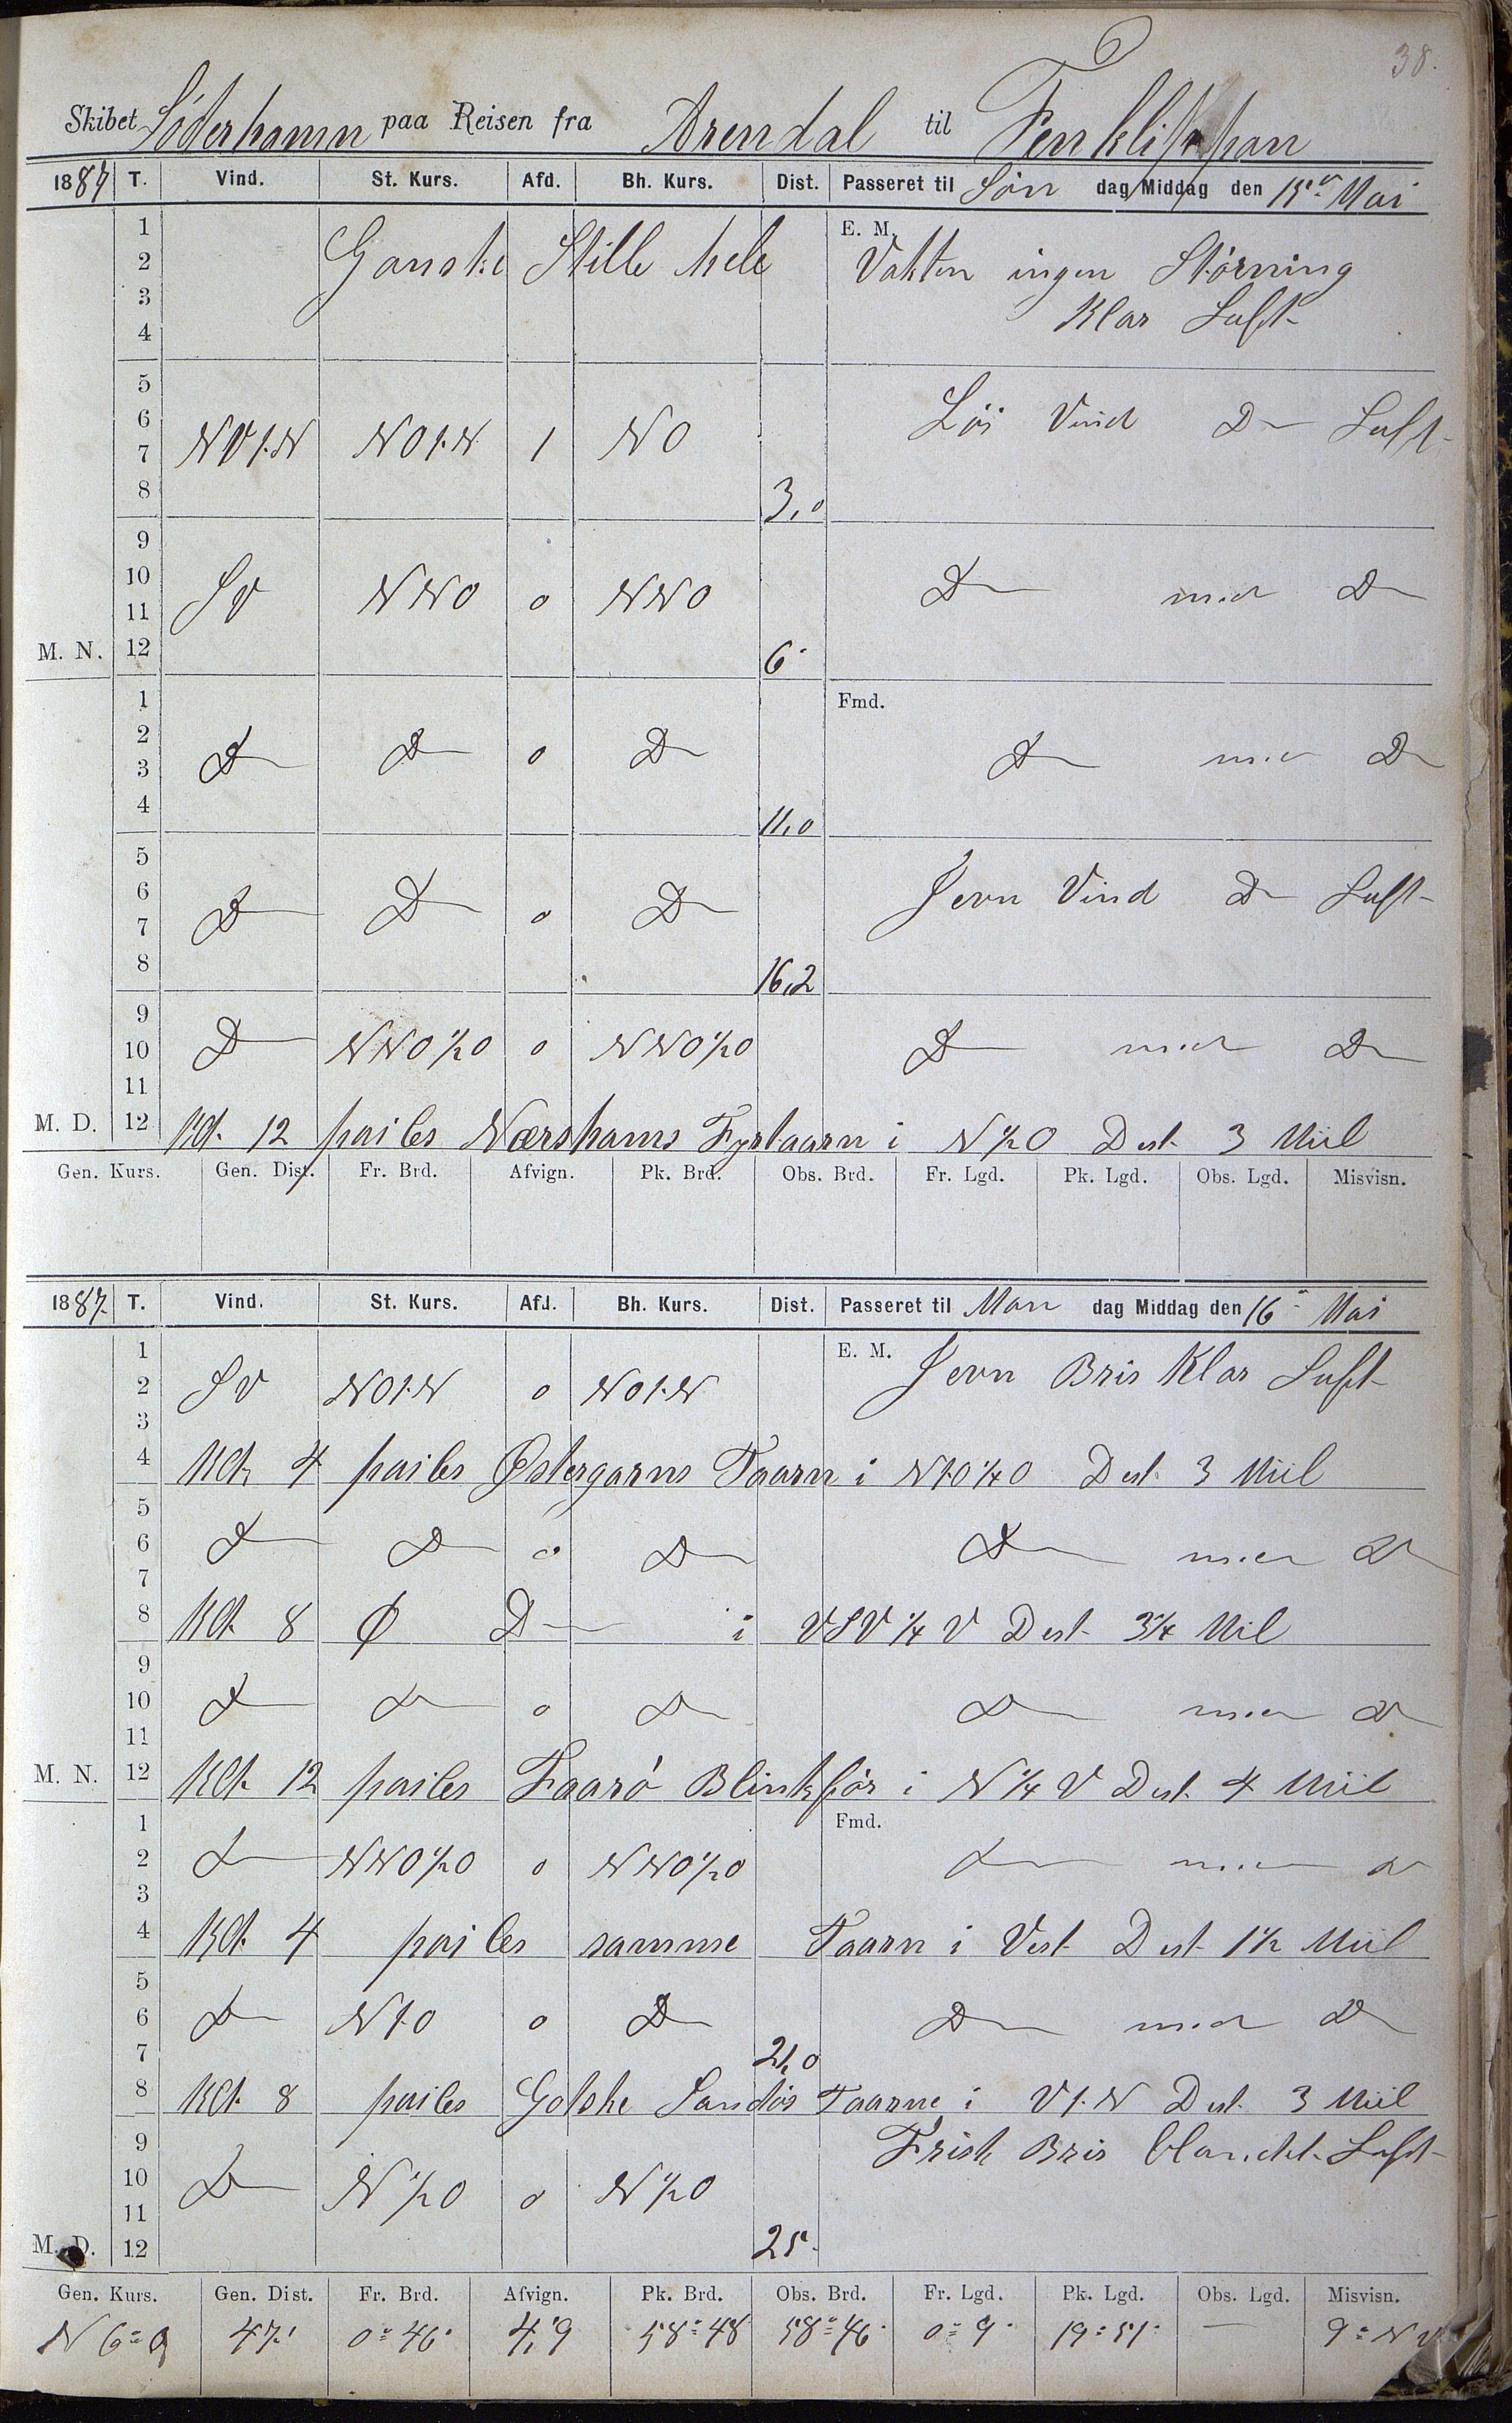 38.
Skibet Söderhamn paa Reisen fra Arendal til
1887 T. Vind. St. Kurs. Afd. Bh. Kurs. Dist. Passeret til Søn dag Middag den 15de Mai
1 E. M.
2 Ganske Stille hele Vakten ingen Störning
3
4 Klar Luft
5
6 Löi Vind D Luft
7 NO NOt.N 1 NO
8 3,0
9
10 SV NNO 0 NNO D med D
11
M. N. 12 6
1 Fmd.
2 D D 0 D D med D
3
4 11,0
5
6 D D 0 D Jevn Vind D Luft
7
8 16,2
9
10 D NNO½O 0 NNO½O D med D
11
M. D. 12 Kl. 12 peiles Nærshams Fyrtaarn i N½O Dist. 3 Miil
Gen. Kurs. Gen. Dist. Fr. Brd. Afvign. Pk. Brd. Obs. Brd. Fr. Lgd. Pk. Lgd. Obs. Lgd. Misvisn.
1887 T. Vind. St. Kurs. Afd. Bh. Kurs. Dist. Passeret til Man dag Middag den 16 Mai
1 E. M. Jevn Bris Klar Luft
2 SV NOt.N 0 NOt.N
3
4 Kl. 4 peiles Østergarns Taarn i Nt.O¼O Dist. 3 Miil
5
6 D D 0 D D med D
7
8 Kl. 8 Ø D i VSV¼V Dist. 3¼ Mil
9
10 D D 0 D D med D
11
M. N. 12 Kl. 12 peiles Faarö Blinkför i N¼V Dist. 4 Miil
1 Fmd.
2 D NNO½O 0 NNO½O D med D
3
4 Kl. 4 peiles samme Taarn i Vest Dist. 1½ Miil
5
6 D Nt.O 0 D D med D
7 21,0
8 Kl. 8 peiles Gotske Sandös Taarne i Vt.N Dist. 3 Miil
9 Frisk Bris blandet Luft
10 D N½O 0 N½O
11
M. D. 12 25
Gen. Kurs. Gen. Dist. Fr. Brd. Afvign. Pk. Brd. Obs. Brd. Fr. Lgd. Pk. Lgd. Obs. Lgd. Misvisn.
N 6° O 47' 0° 46' 4,9 58° 48 58° 46' 0° 9' 19° 51' — 9° NV